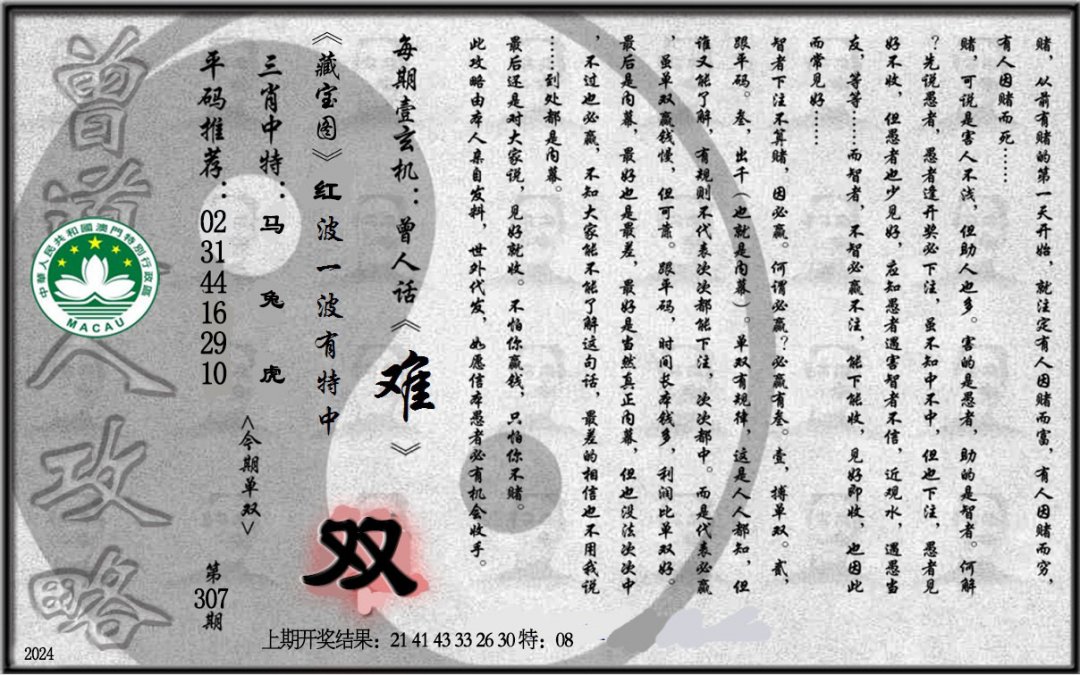 赌，从前有赌的第一天开始，就注定有人因赌而富，有人因赌而穷，
有人因赌而死……
赌，可说是害人不浅，但助人也多。害的是愚者，助的是智者。何解
？先说愚者，愚者逢开奖必下注，虽不知中不中，但也下注，愚者见
好不收，但愚者也少见好，应知愚者遇害智者不信，近观水，遇愚当
友，等等……而智者，不智必赢不注，能下能收，见好即收，也因此
而常见好……
智者下注不算赌，因必赢。何谓必赢？必赢有叁。壹，搏单双。贰，
跟平码。叁，出千（也就是内幕）。单双有规律，这是人人都知，但
谁又能了解，有规则不代表次次都能下注，次次都中。而是代表必赢
，虽单双赢钱慢，但可靠。跟平码，时间长本钱多，利润比单双好。
最后是内幕，最好也是最差，最好是当然真正内幕，但也没法次次中
，不过也必赢，不知大家能不能了解这句话，最差的相信也不用我说
……到处都是内幕。
最后还是对大家说，见好就收。不怕你赢钱，只怕你不赌。
此攻略由本人亲自发料，世外代发，如愿信本愚者必有机会收手。
每期壹玄机：曾人话《难》
《藏宝图》红波一波有特中
双
三肖中特：马兔虎
<今期单双>
平码推荐：
02
31
44
16
29
10
第
307
期
曾道人攻略
中華人民共和國澳門特別行政區
MACAU
上期开奖结果：21 41 43 33 26 30 特：08
2024